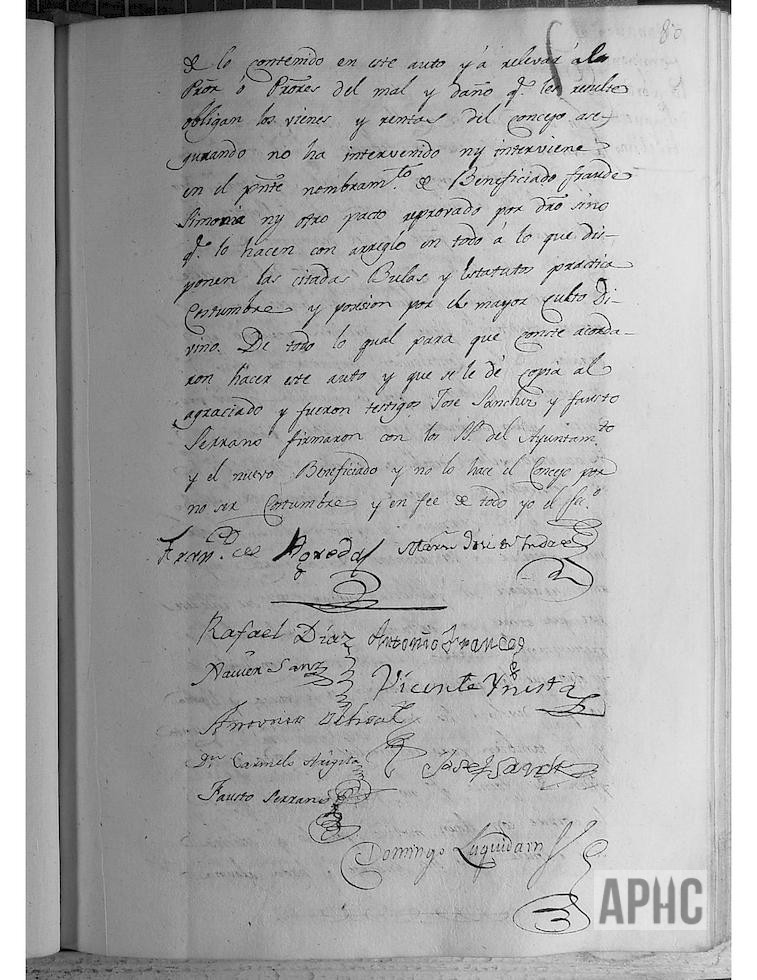 80
de lo contenido en este auto y á relevar á la
Pror ó Prores del mal y daño q.e les resulte
obligan los vienes y rentas del Concejo ase-
gurando no ha intervenido ny interviene
en el pnte nombram.to de Beneficiado fraude
Simonia ny otro pacto reprovado por dro sino
q.e lo hacen con arreglo en todo á lo que dis-
ponen las citadas Bulas y Estatutos practica
Costumbre y posesion por el mayor culto Di-
vino. De todo lo qual para que conste acorda-
ron hacer este auto y que se le dé copia al
agraciado y fueron testigos Jose Sanchez y fausto
Serrano firmaron con los SS. del Ayuntam.to
y el nuevo Beneficiado y no lo hace el Concejo por
no ser Costumbre y en fee de todo yo el fe.o
Fern.do de Agreda
Rafael Díaz Antonio Frances
Xavier Sanz
Vicente Ynesta
Dn Carmelo
Jose Sanchez
Fausto Serrano
Domingo Luquidain
APHC